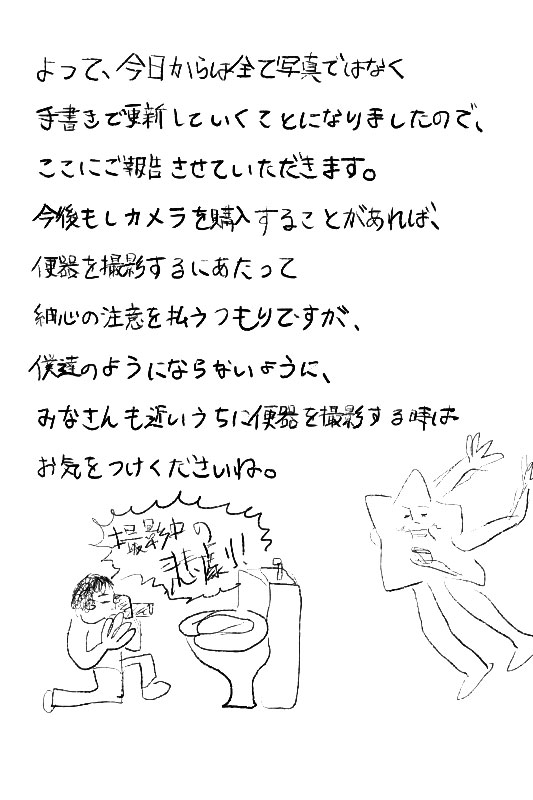 よって、今日からは全て写真ではなく
手書きで更新していくことになりましたので、
ここにご報告させていただきます。
今後もしカメラを購入することがあれば、
便器を撮影するにあたって
細心の注意を払うつもりですが、
僕達のようにならないように、
みなさんも近いうちに便器を撮影する時は
お気をつけくださいね。
撮影中の
悲劇!!